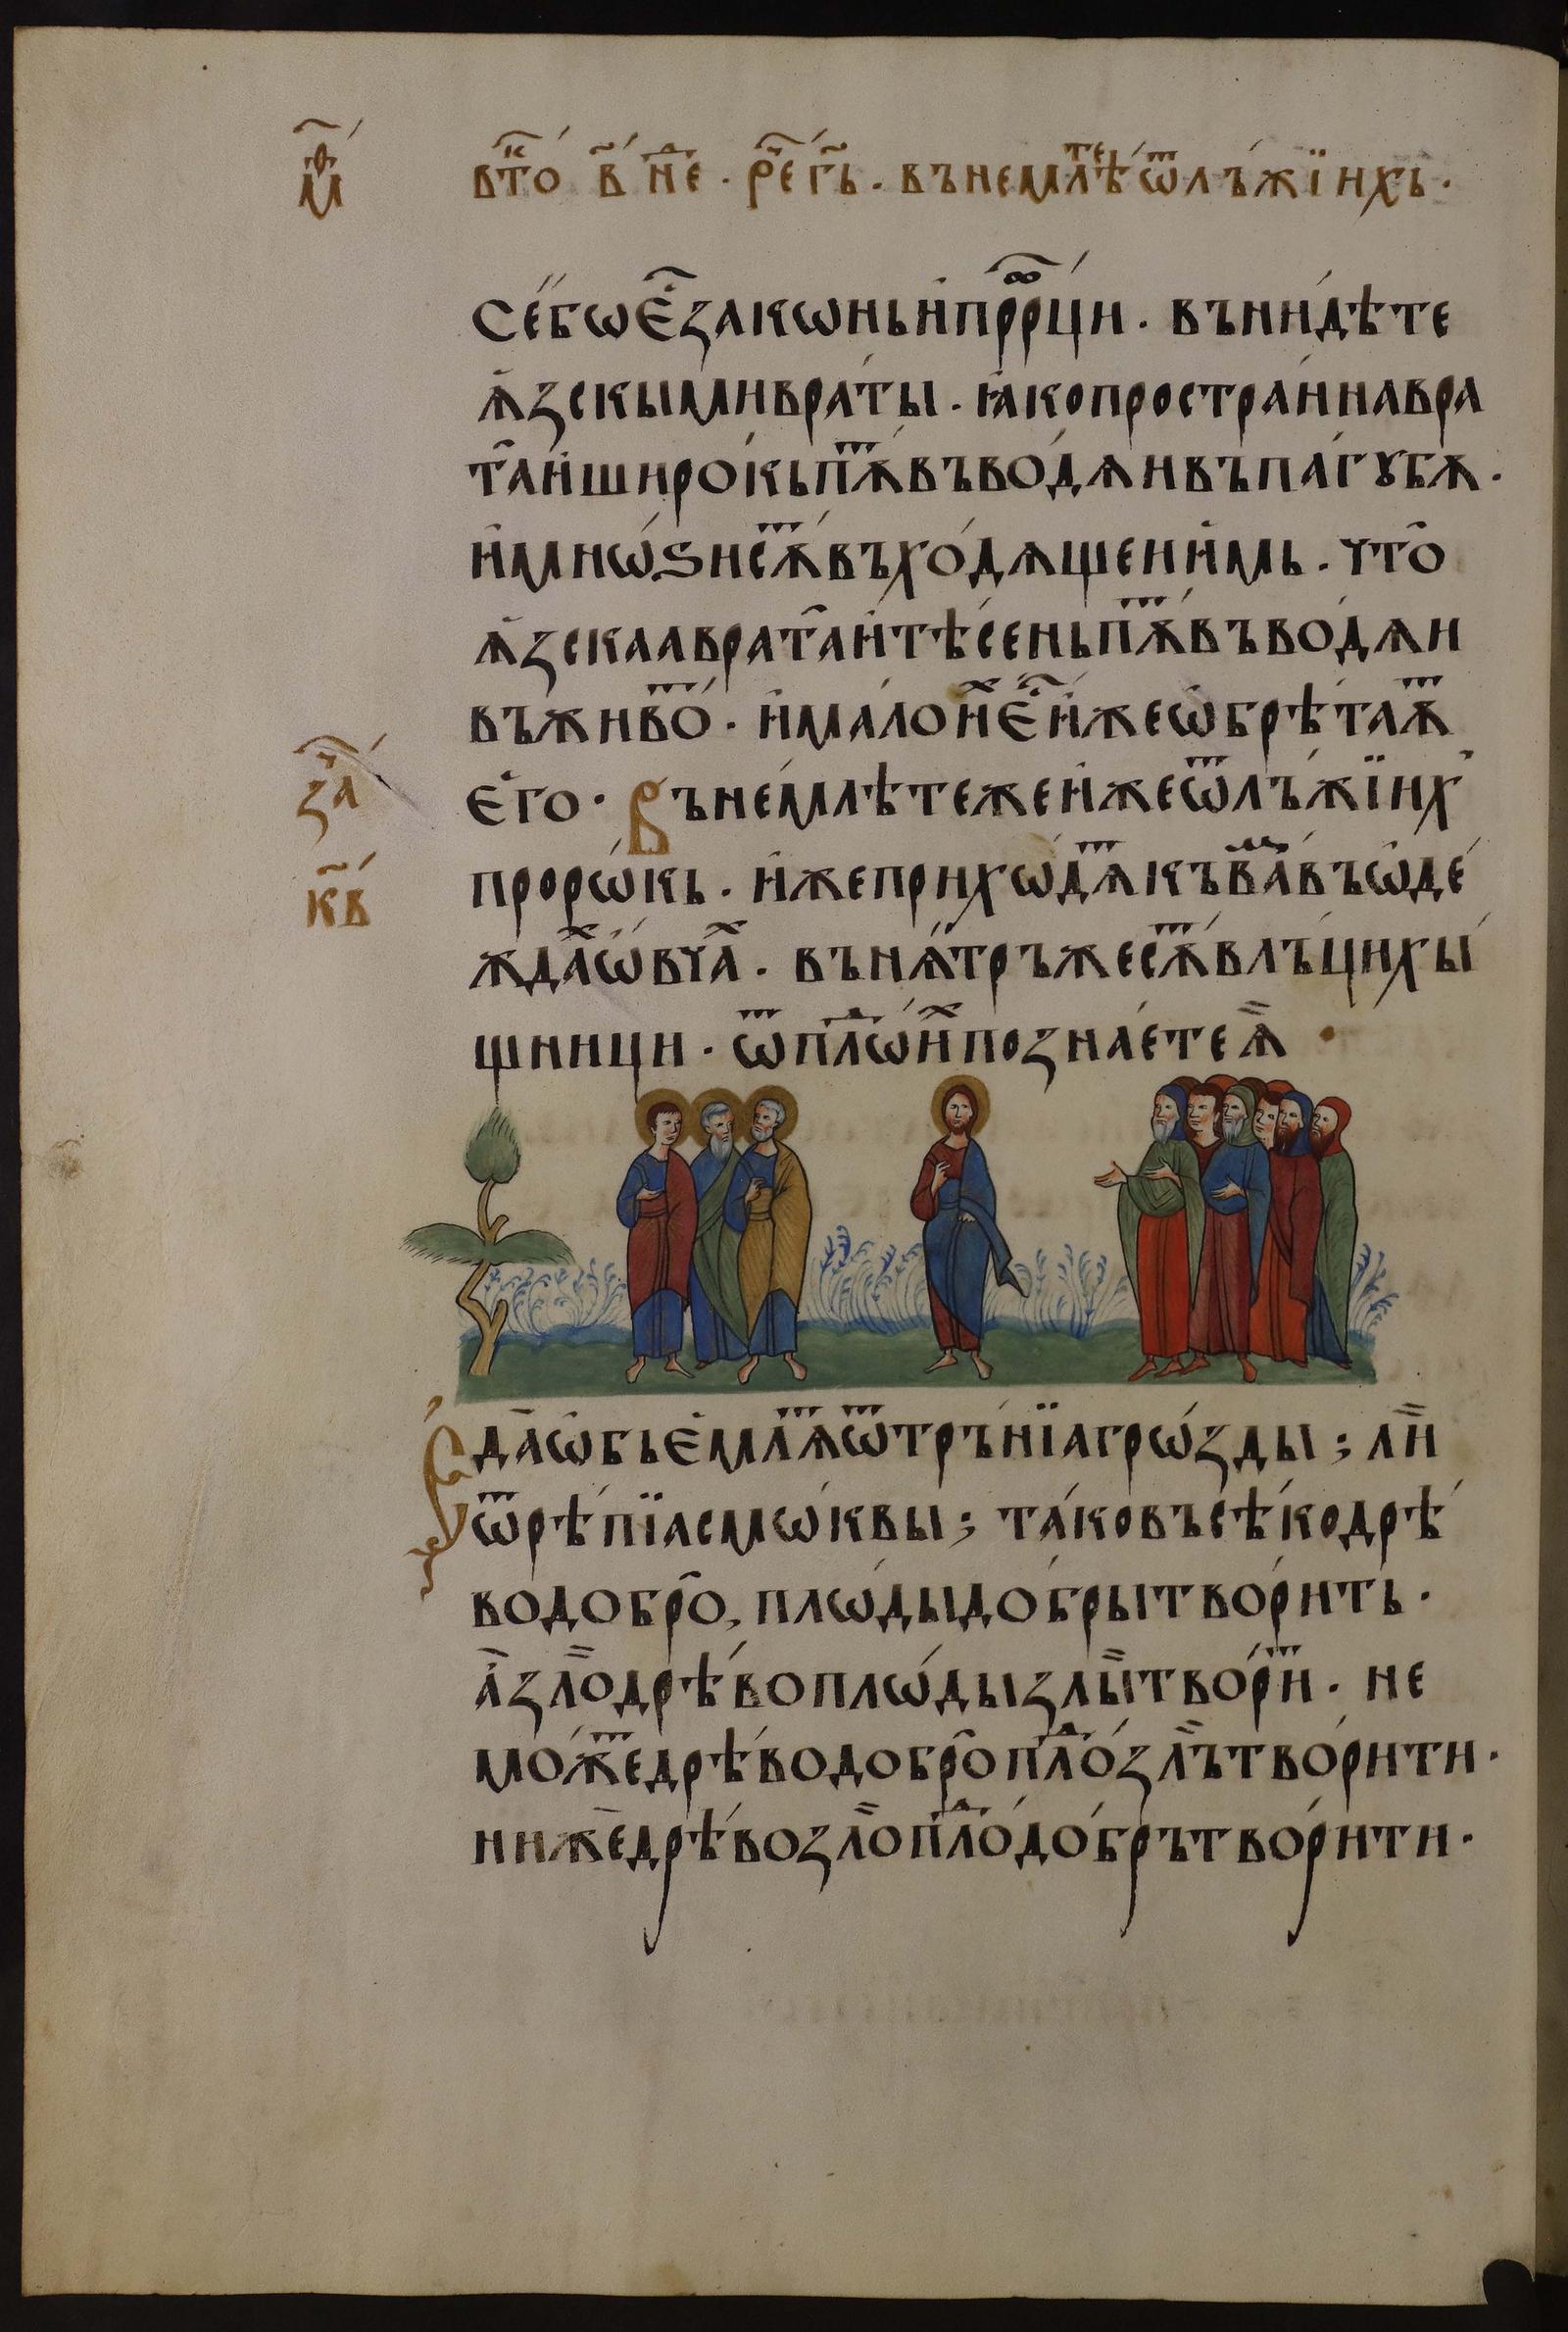 м҃ѳ
вто҃к в҃ нⷣе . рⷱе г҃ь . вънемлѣⷮеѿлъжїихъ .
се́бѡе҃законьипрⷪ҇рци . въни́дѣте
ѫзскымивра́ты . ꙗкопростра́ннавра
та҄иширо́кьпⷮѫвъво́дѧивъпа́гꙋбѫ .
имнѡ́ѕисⷮѫвъхо́дѧщеиимь . что҄
ѫзскаавратаитѣ́сеньпⷮѫвъво́дѧи
въживⷮо . има́лоⷯие҃ижеѡбрѣ́таⷮѫ
его . Въне́млѣтежеижеѿлъ́жїих
зⷱа
проро́кь . ижеприхѡ́дⷮѧкъваⷨвъѡде́
к҃в
ждаⷯѡ́вчаⷯ . вънѫ́тръжесⷮѫвлъ́цихы́
щници . ѿплⷣѡ́иⷯпозна́етеѧ .
Едаѡбьемлⷮѧѿтръ́нїагрѡ́зды ; ли
ѿрѣ́пїасмѡ́квы ; та́ковъсѣ́кодрѣ́
водобро , плѡ́дыдо́брытво́рить .
азлодрѣ́воплѡ́дызлытво́рⷮи . не
мо́жⷮедрѣ́водоброплⷣо́злътво́рити .
нижедрѣ́возлоплⷣо́до́брътво́рити .